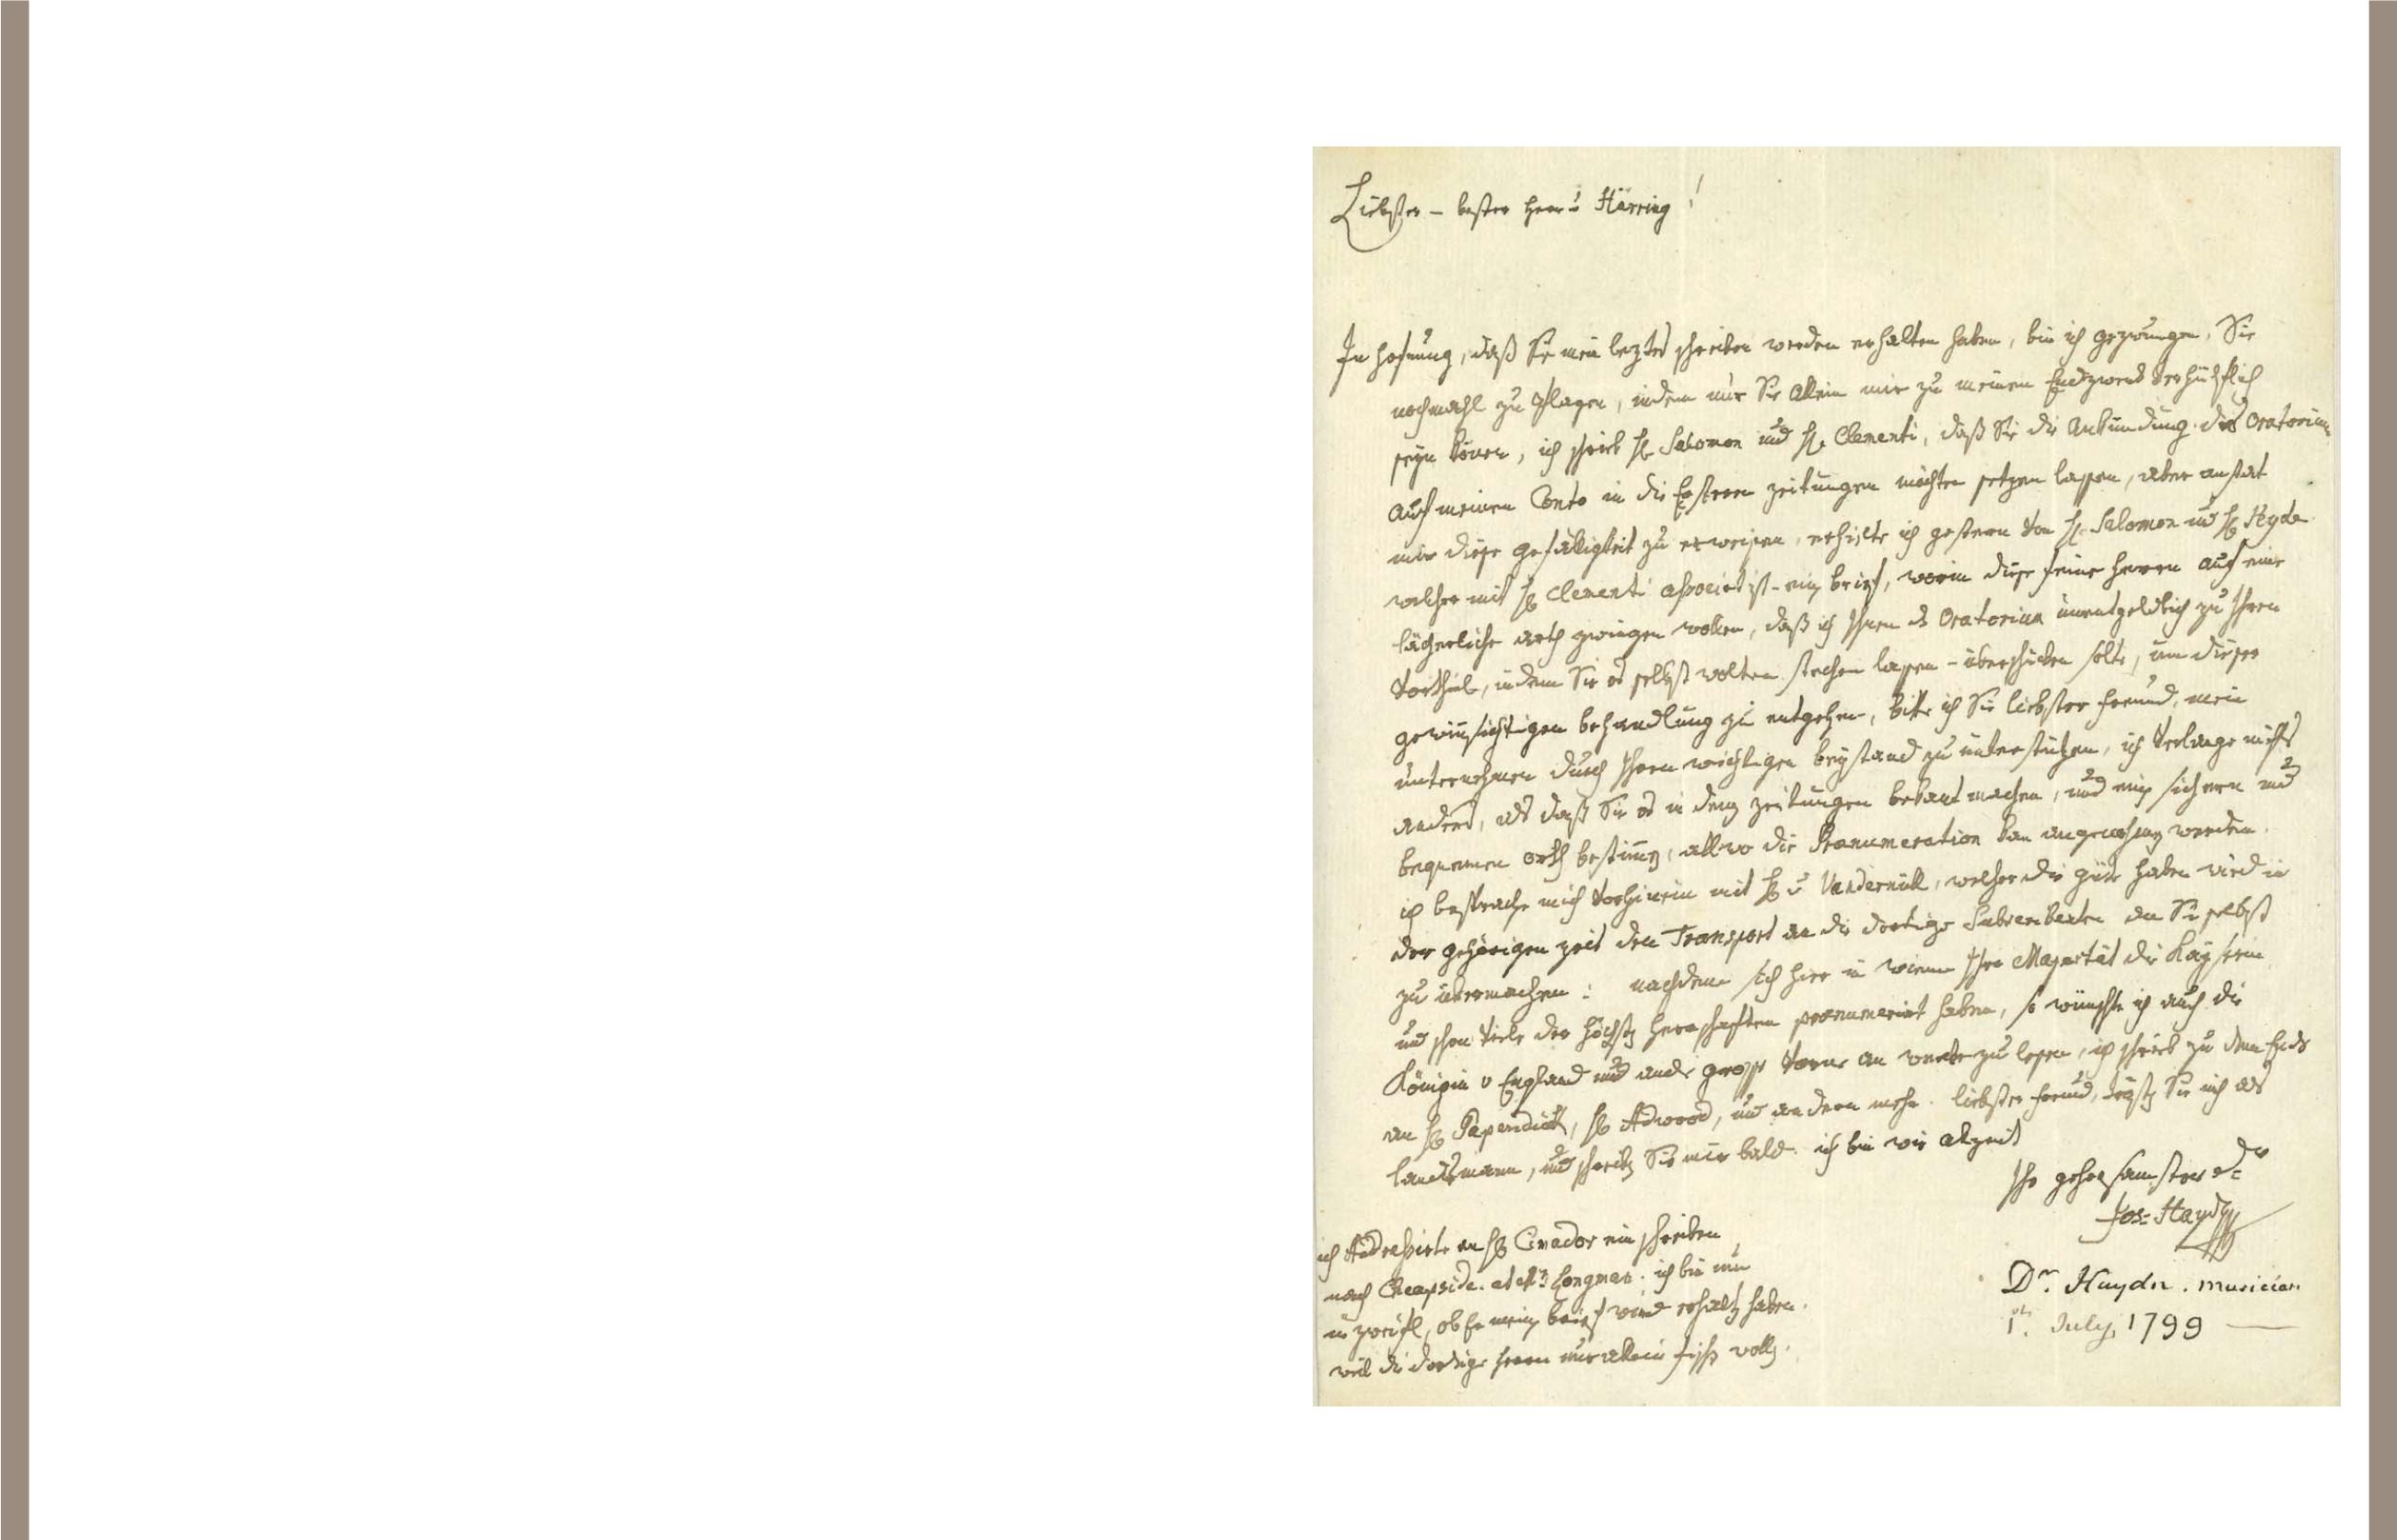 Liebster – bester Herr v Härring!
In Hofnung, daß Sie mein leztes schreiben werden erhalten haben, bin ich gezwungen, Sie
nochmahl zu plagen, indem nur Sie Allein mir zu meinen Endzweck verhülflich
seyn könen, ich schrieb H Salomon und H. Clementi, daß Sie die Ankündung des Oratorium
auf meinen Conto in die Ersteren zeitungen möchten setzen lassen, aber anstat
mir diese gefälligkeit zu erweisen, erhielte ich gestern von H. Salomon und H Hyde
welcher mit H Clementi associet ist – ein brief, worin diese feine Herrn auf eine
lächerliche arth zwingen wollen, daß ich Ihnen ds Oratorium unentgeldlich zu Ihren
vortheil, indem Sie es selbst wolten stechen lassen – überschicken solte, um dieser
gewinsichtigen behandlung zu entgehen, bitte ich Sie liebster freund, mein
unternehmen durch Ihren wichtigen beystand zu unterstützen, ich verlange nichts
anders, als daß Sie es in den zeitungen bekant machen, und ein sichern und
bequemen orth bestimen, allwo die Pranumeration kan angenohmen werden.
ich besprache mich vorhinein mit H v Vandernüll, welcher die güte haben wird in
der gehörigen zeit den Transport an die dortige Subscribenten an Sie selbst
zu übermachen: nachdem sich hier in Wienn Ihre Majestät die Kayserin
und schon viele der höchsten Herrschaften prænumerirt haben, so wünschte ich auch die
Königin v England und andre grosse voran zu lesen, ich schrieb zu dem Ende
an H Papendiek, H Adwood, und andern mehr. liebster freund, trösten Sie mich als
landsmann, und schreiben Sie mir bald. ich bin wie allzeit
Ihr gehorsamster Dr
Jos: Haydn
ich Addressirte an H Cimador ein schreiben
nach Cheapside. at Longman. ich bin nun
in zweifel, ob Er mein brief wird erhalten haben.
weil die dortige Herrn nur allein fischen wollen.
Dr. Haydn. musician
1st. July, 1799